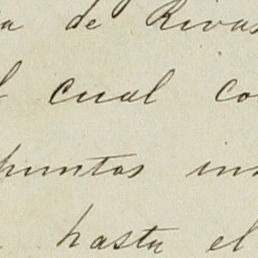 a de Rivas
l cual co
puntos in
hasta el